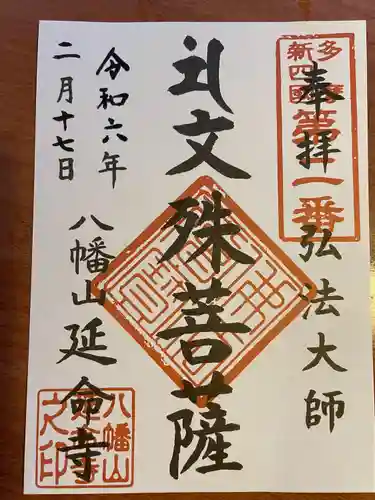 多摩
新四國
第二番
奉拝
弘法大師
文殊菩薩
令和六年
二月十七日
八幡山
延命寺
八幡山
延命寺
之印